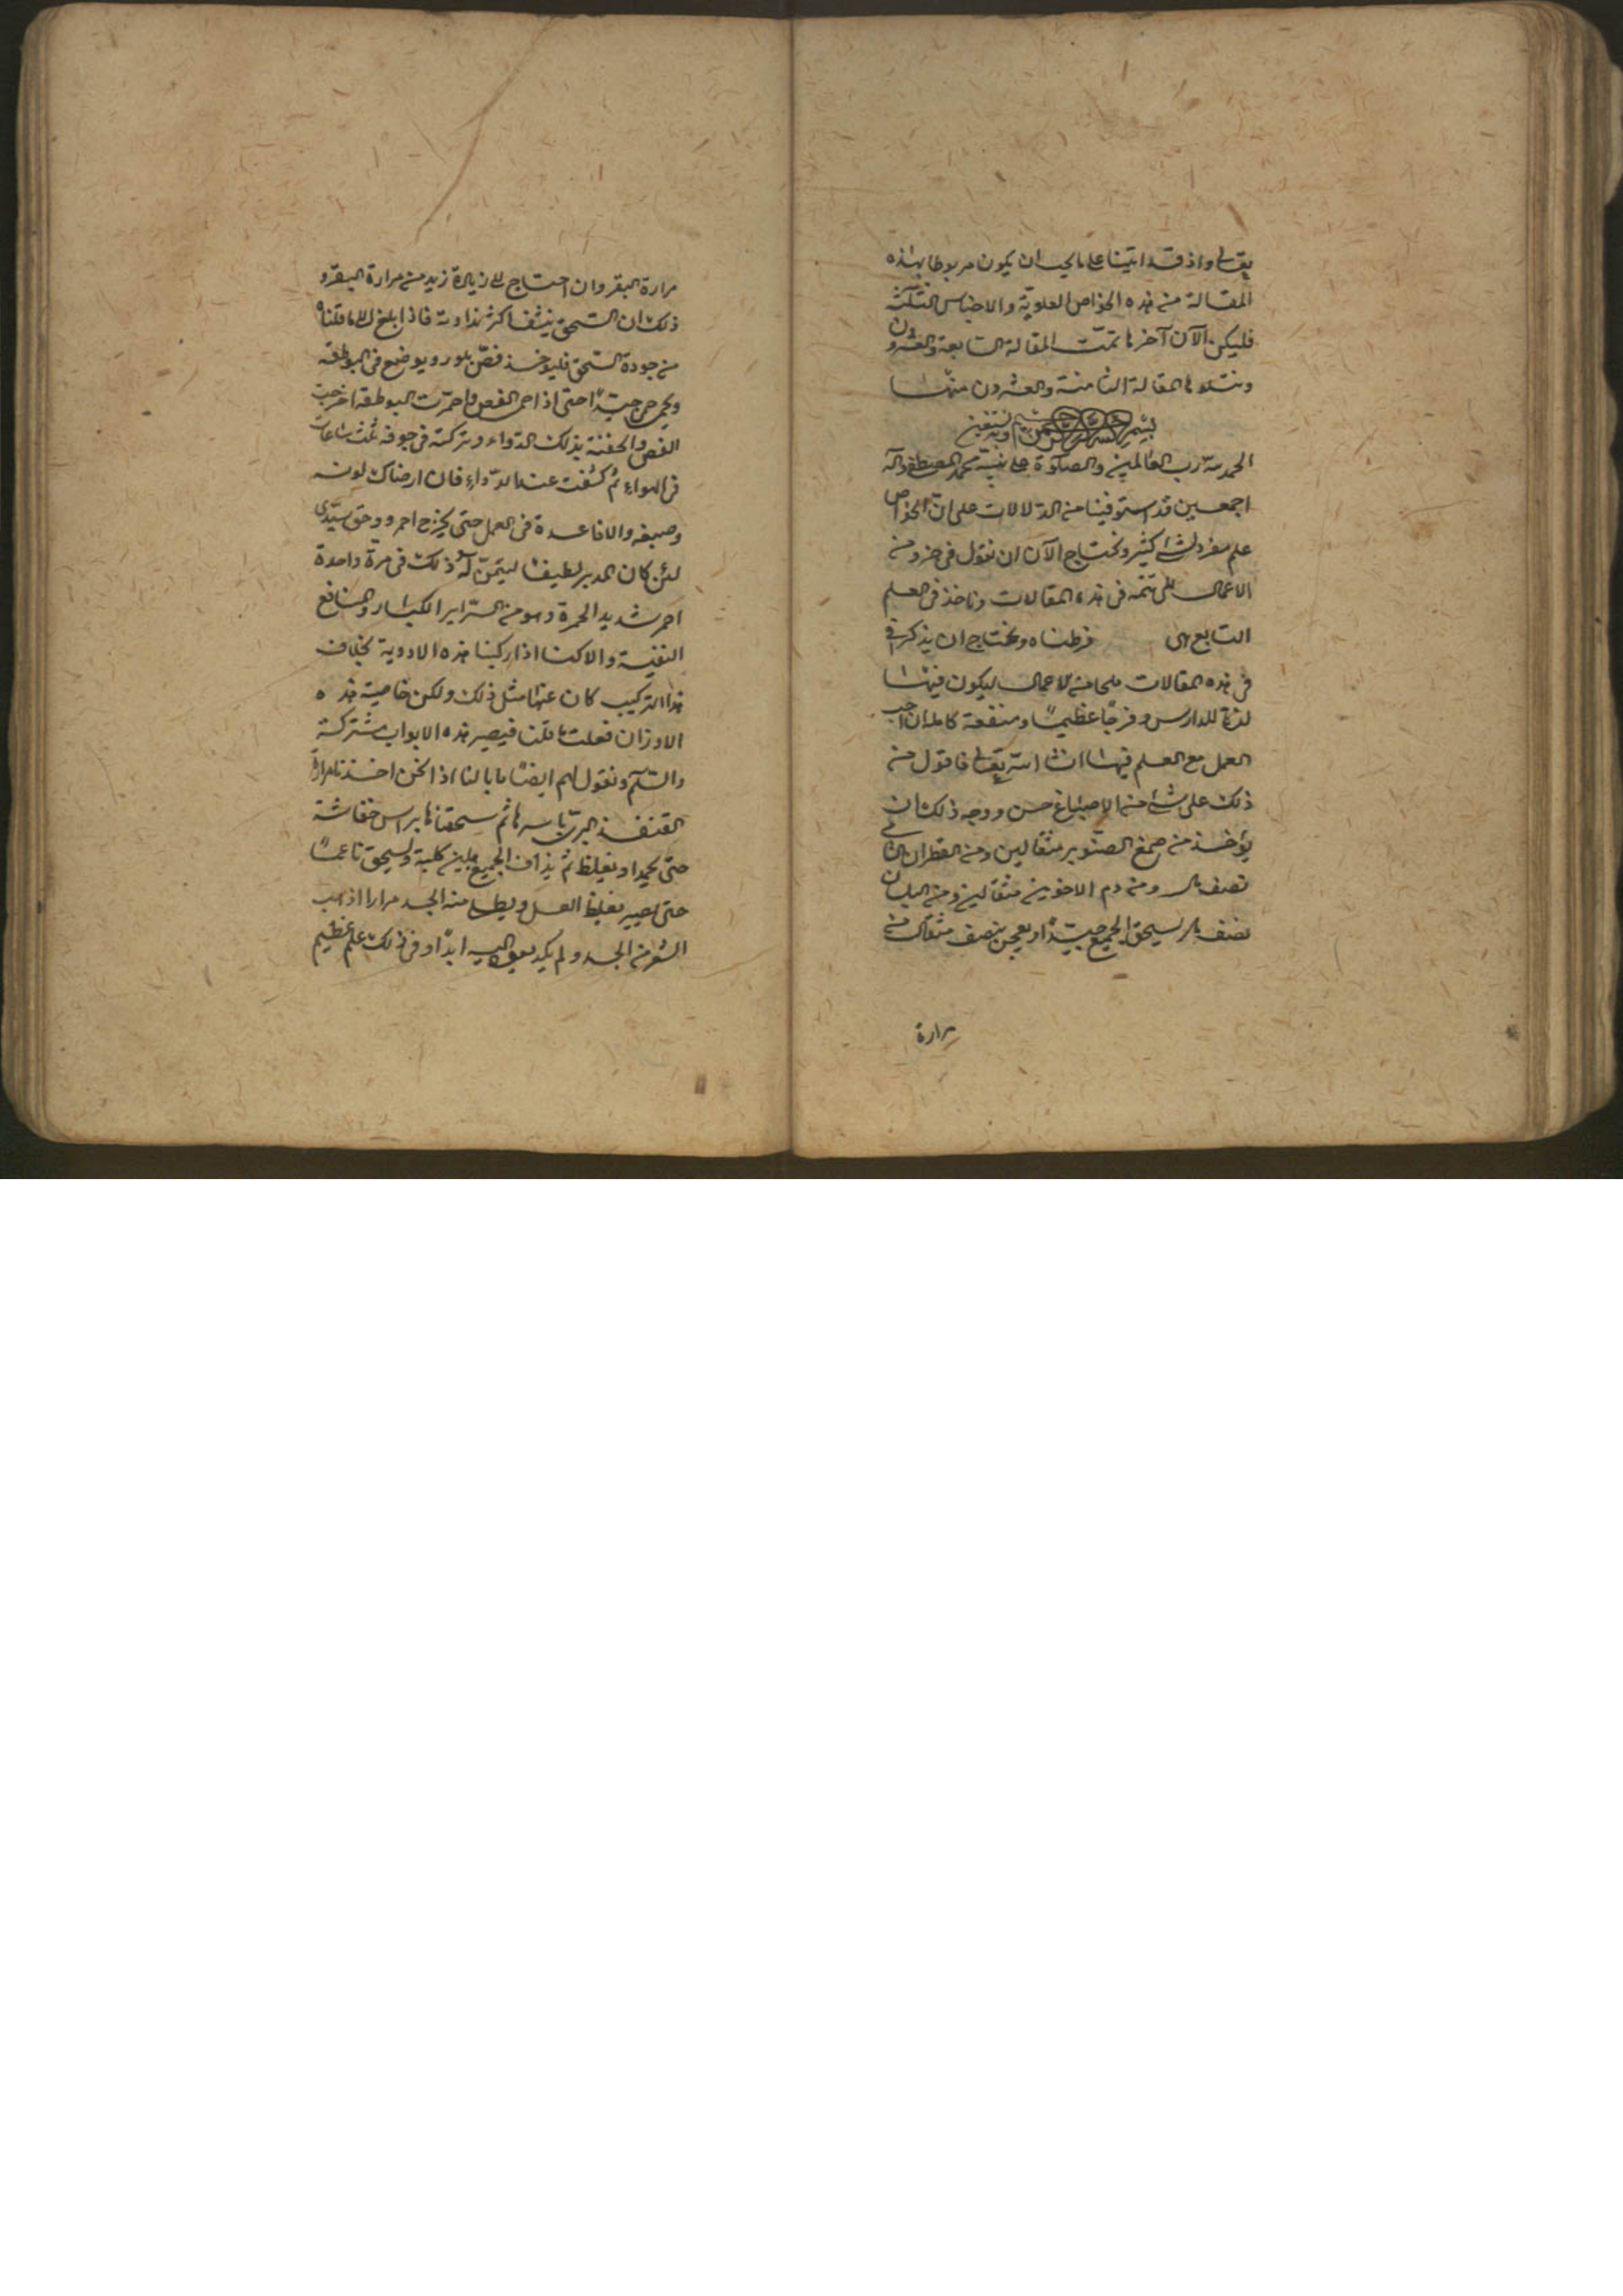 تعالى واذ قد اتينا على ما يجب ان يكون مربوطا بهذه
المقالة من هذه الخواص العلوية والاجناس الثلثة
فليكن الآن آخرها تمت المقالة السابعة والعشرون
وتتلوها المقالة الثامنة والعشرون منها
بسم الله الرحمن الرحيم وبه نستعين
الحمد لله رب العالمين والصلوة على نبيه محمد المصطفى وآله
اجمعين قد استوفينا من الدلالات على ان الخواص
علم مفرد كثير ونحتاج الآن ان نقول في جزو من
الاعمال في هذه المقالات وناخذ في العلم
التابع فرطناه ونحتاج ان يذكر في
في هذه المقالات من الاعمال ليكون فيها
لذة للدارس وفرجا عظيما ومنفعة كاملة ان احب
العمل مع العلم فيها ان شا الله تعالى فاقول من
ذلك على شئ من الاصباغ حسن ووجه ذلك ان
يؤخذ من صمغ الصنوبر مثقالين ومن القطران
نصف ومن دم الاخوين مثقالين ومن اللبان
نصف يسحق الجميع جيدا ويعجن بنصف مثقال من
مرارة
مرارة البقر وان احتاج الى زيادة زيد من مرارة البقر و
ذلك ان السحق ينشف اكثر نداوته فاذا بلغ الى ما قلنا
من جودة السحق فليوخذ فص بلور ويوضع في البوطقه
ويحمى جيدا حتى اذا احمر الفص واحمرت البوطقه اخرجت
الفص والحقنة بذلك الدواء وتركته في جوفه ثلث ساعات
في الهواء ثم كشفت عنه الدواء فان ارضاك لونه
وصبغه والا فاعده في العمل حتى يخرج احمر ووحق سيدي
لئن كان المدبر لطيفا ليتمن له ذلك في مرة واحدة
احمر شديد الحمرة وهو من السراير الكبار والمنافع
النفيسة والا كنا اذا ركبنا هذه الادوية بخلاف
هذا التركيب كان عنها مثل ذلك ولكن خاصية هذه
الاوزان فعلت ما قلنا فيصير هذه الابواب مشتركة
والسلم ونقول لهم ايضا ما بالنا اذا نحن اخذنا مرارة
القنفذ البري باسرها ثم سحقناها براس خفاشة
حتى يجمد او يغلظ ثم يذاف الجميع بلبن كلبة ويسحق ناعما
حتى يصير بغلظ العسل ويطلى منه الجسد مرارا اذهب
الشعر من الجسد ولم يكد يعود اليه ابدا وفي ذلك علم عظيم